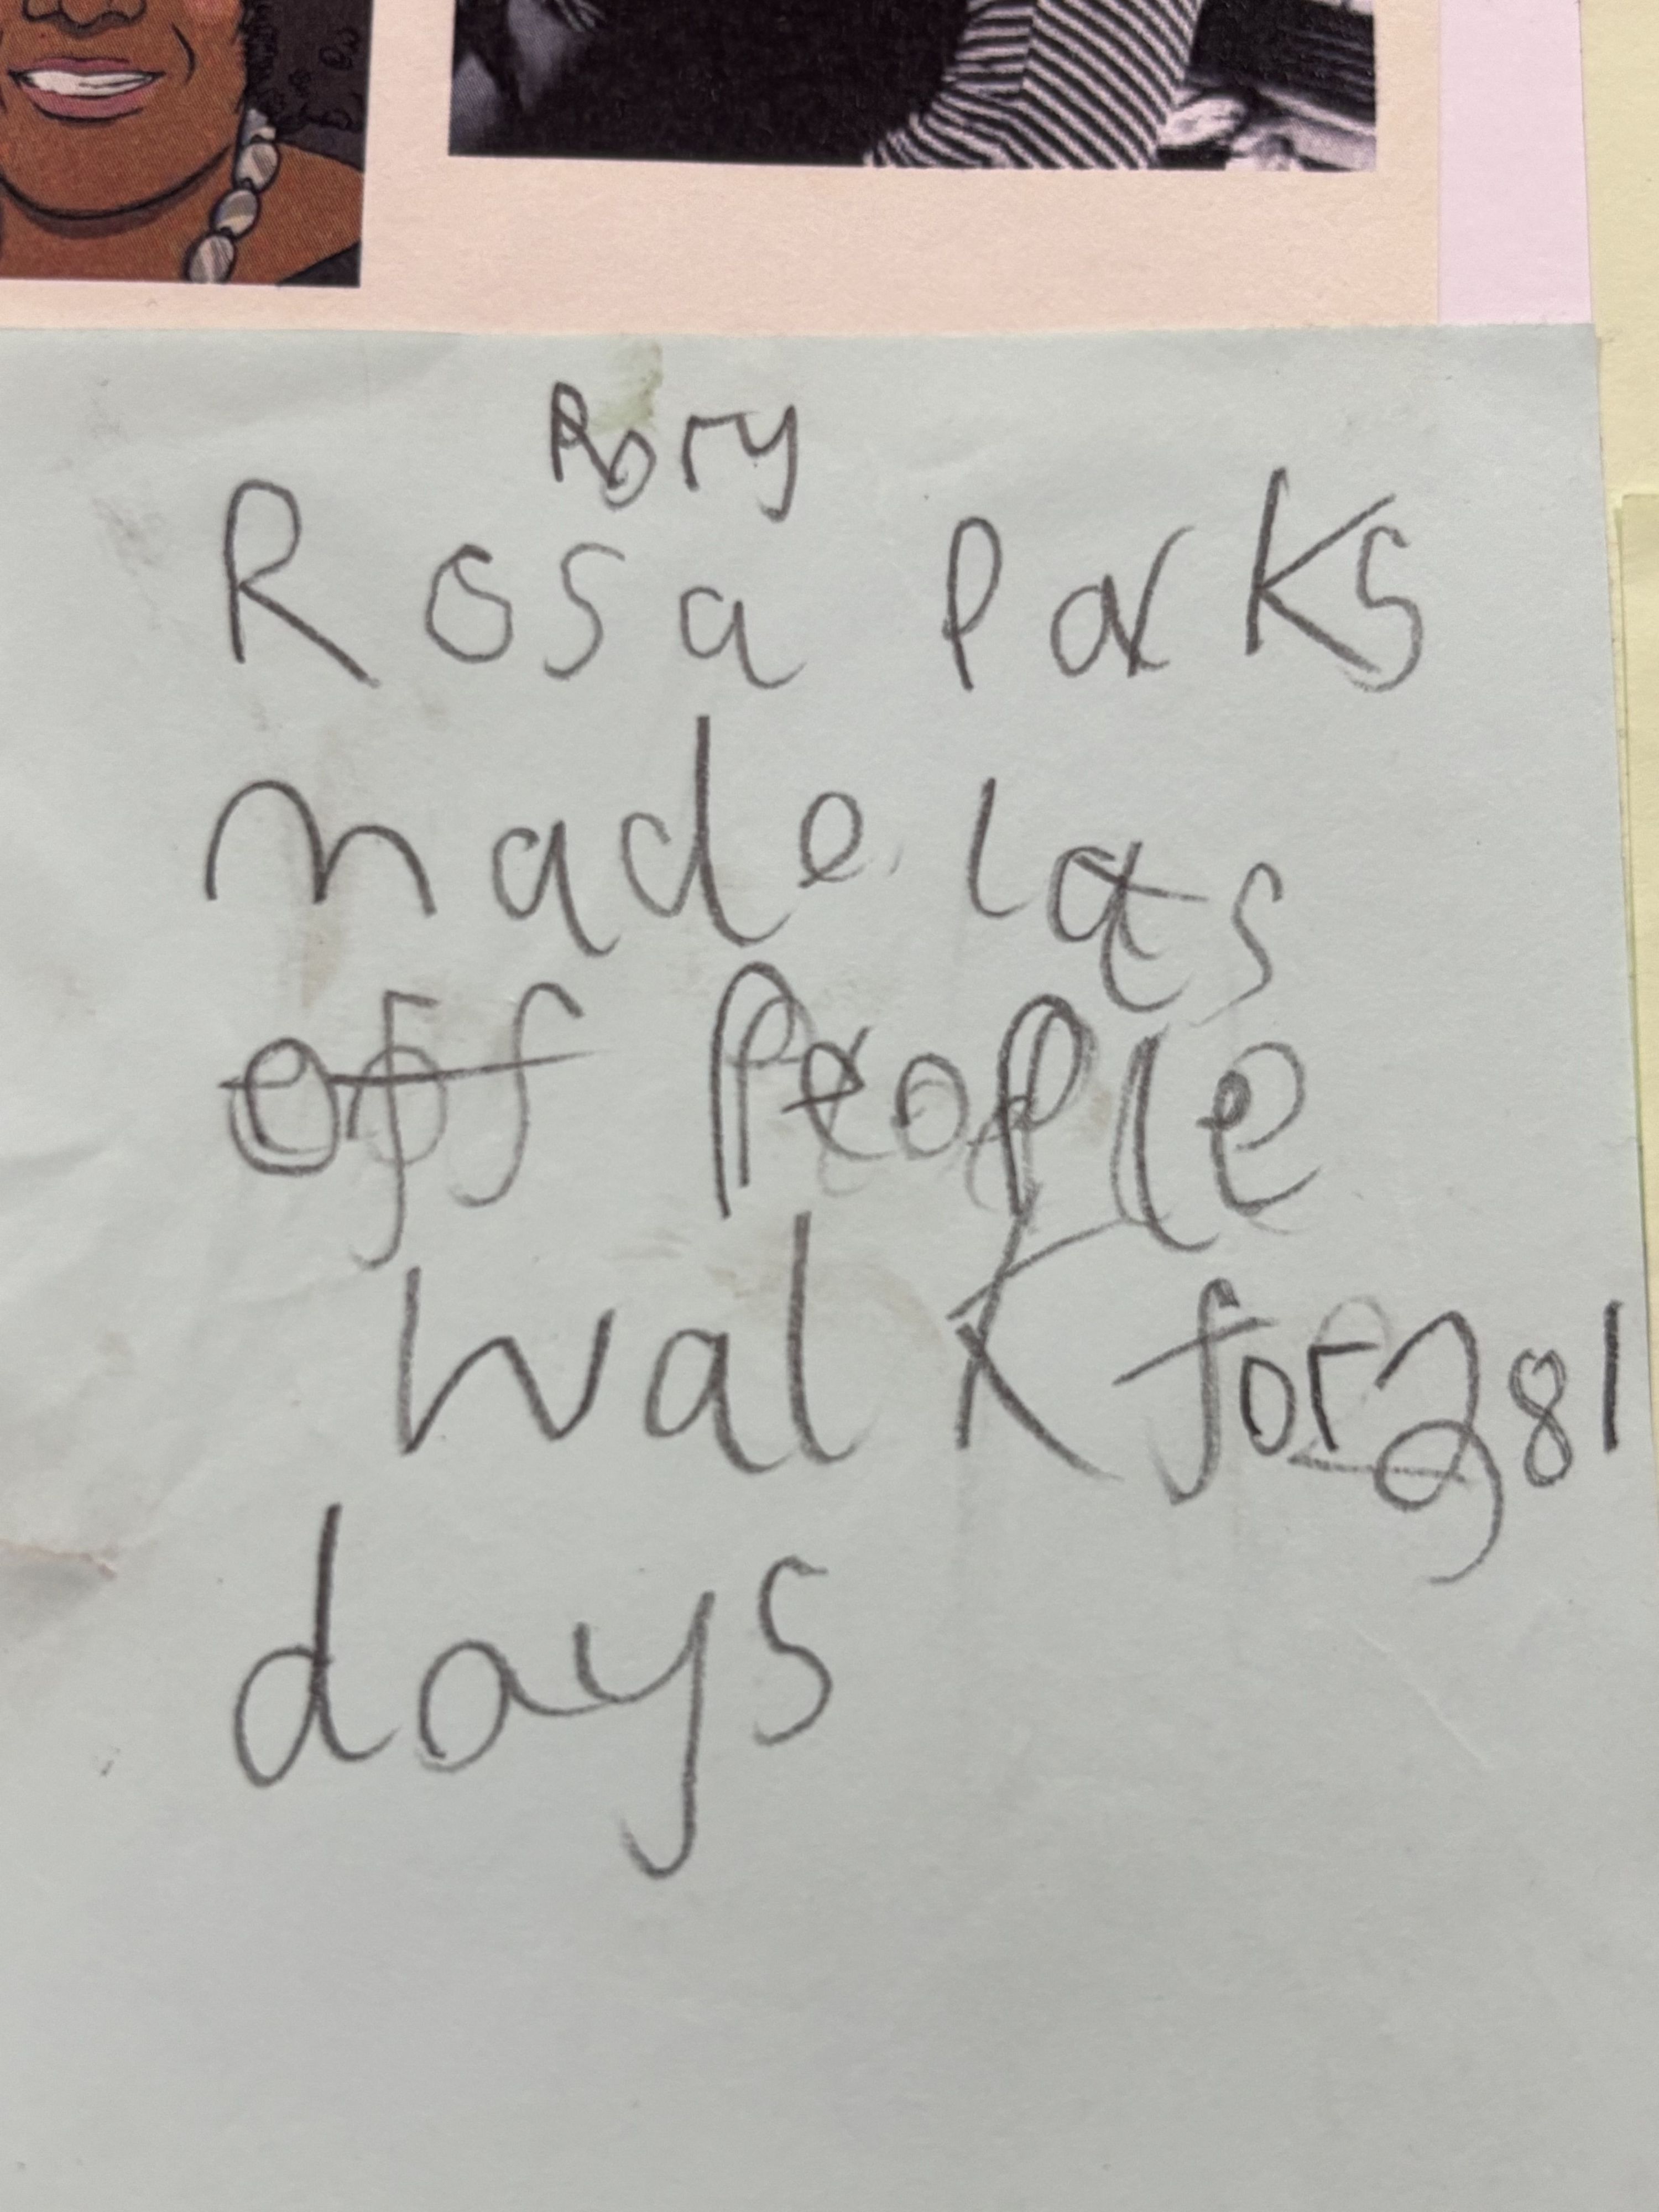 Rory
Rosa Parks
made lats
off People
walk for 381
days